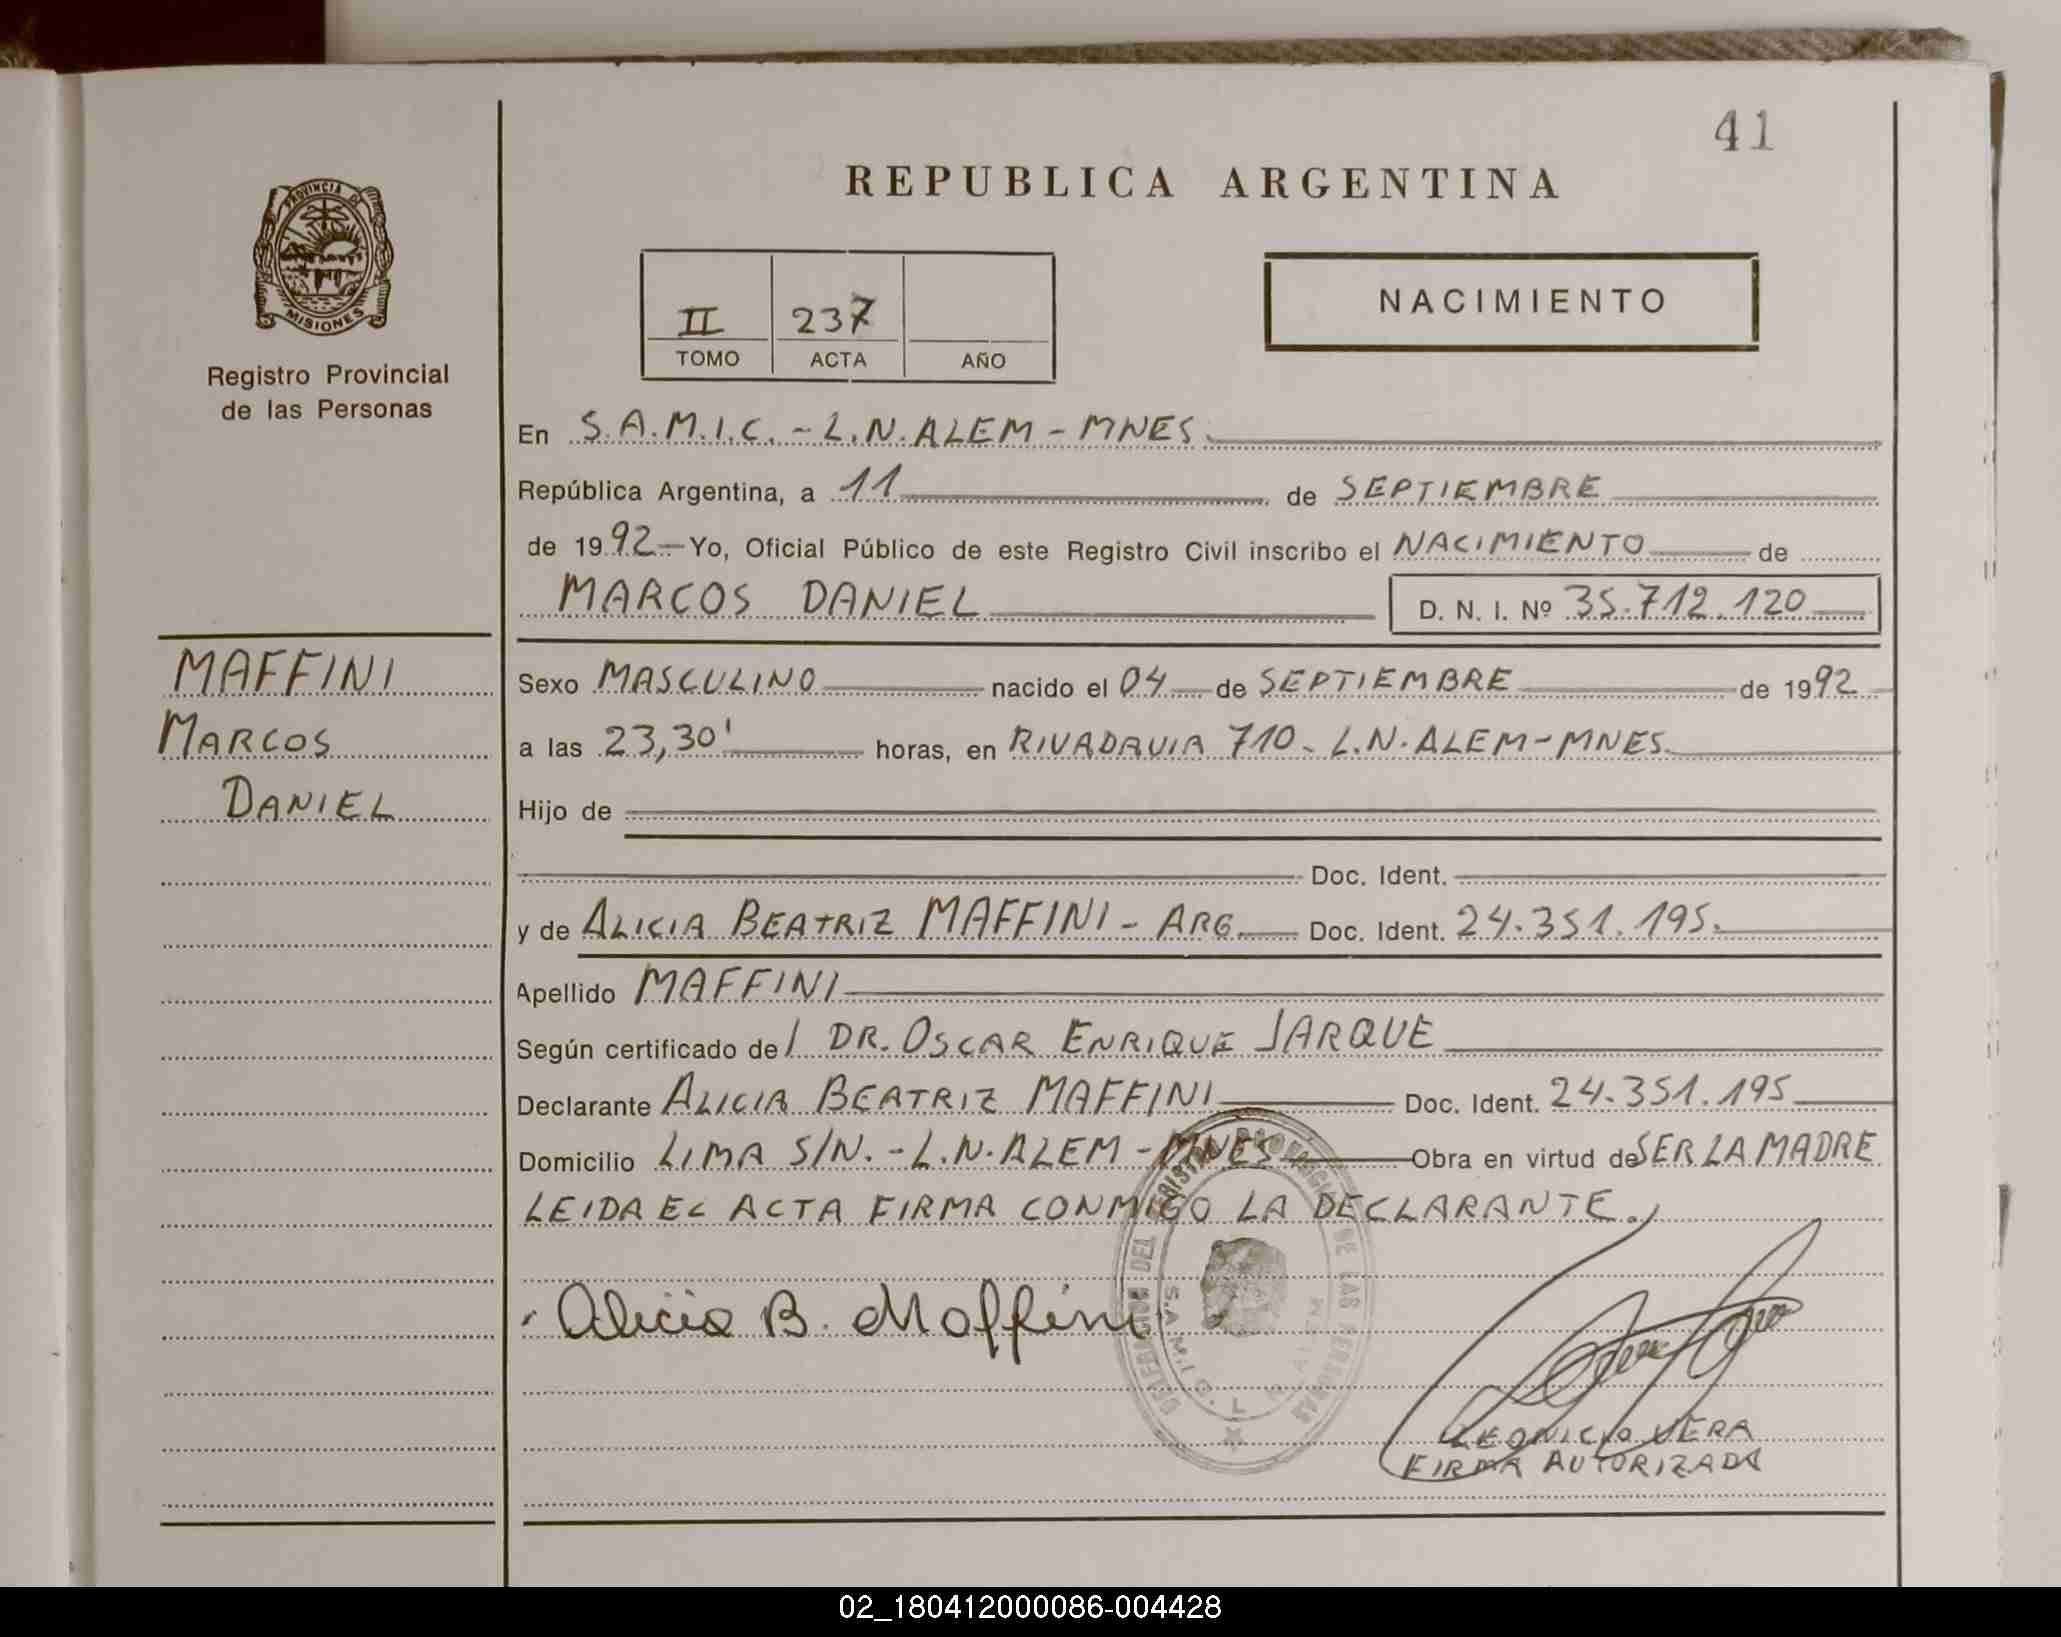 41
REPUBLICA ARGENTINA
PROVINCIA DE
MISIONES
Registro Provincial
de las Personas
II 237
TOMO ACTA AÑO
NACIMIENTO
En S.A.M.I.C. - L.N. ALEM - MNES.
República Argentina, a 11 de SEPTIEMBRE
de 1992 - Yo, Oficial Público de este Registro Civil inscribo el NACIMIENTO de
MARCOS DANIEL D. N. I. Nº 35.712.120
MAFFINI
MARCOS
DANIEL
Sexo MASCULINO nacido el 04 de SEPTIEMBRE de 1992
a las 23,30' horas, en RIVADAVIA 710 - L.N. ALEM - MNES.
Hijo de
Doc. Ident.
y de ALICIA BEATRIZ MAFFINI - ARG. Doc. Ident. 24.351.195.
Apellido MAFFINI
Según certificado del DR. OSCAR ENRIQUE JARQUE
Declarante ALICIA BEATRIZ MAFFINI Doc. Ident. 24.351.195
Domicilio LIMA S/N. - L.N. ALEM - MNES Obra en virtud de SER LA MADRE
LEIDA EL ACTA FIRMA CONMIGO LA DECLARANTE.
Alicia B. Maffini
DEL REGISTRO PROVINCIAL DE LAS PERSONAS
S.A.M.I.C. L. N. ALEM
LEONICIO VERA
FIRMA AUTORIZADA
02_180412000086-004428